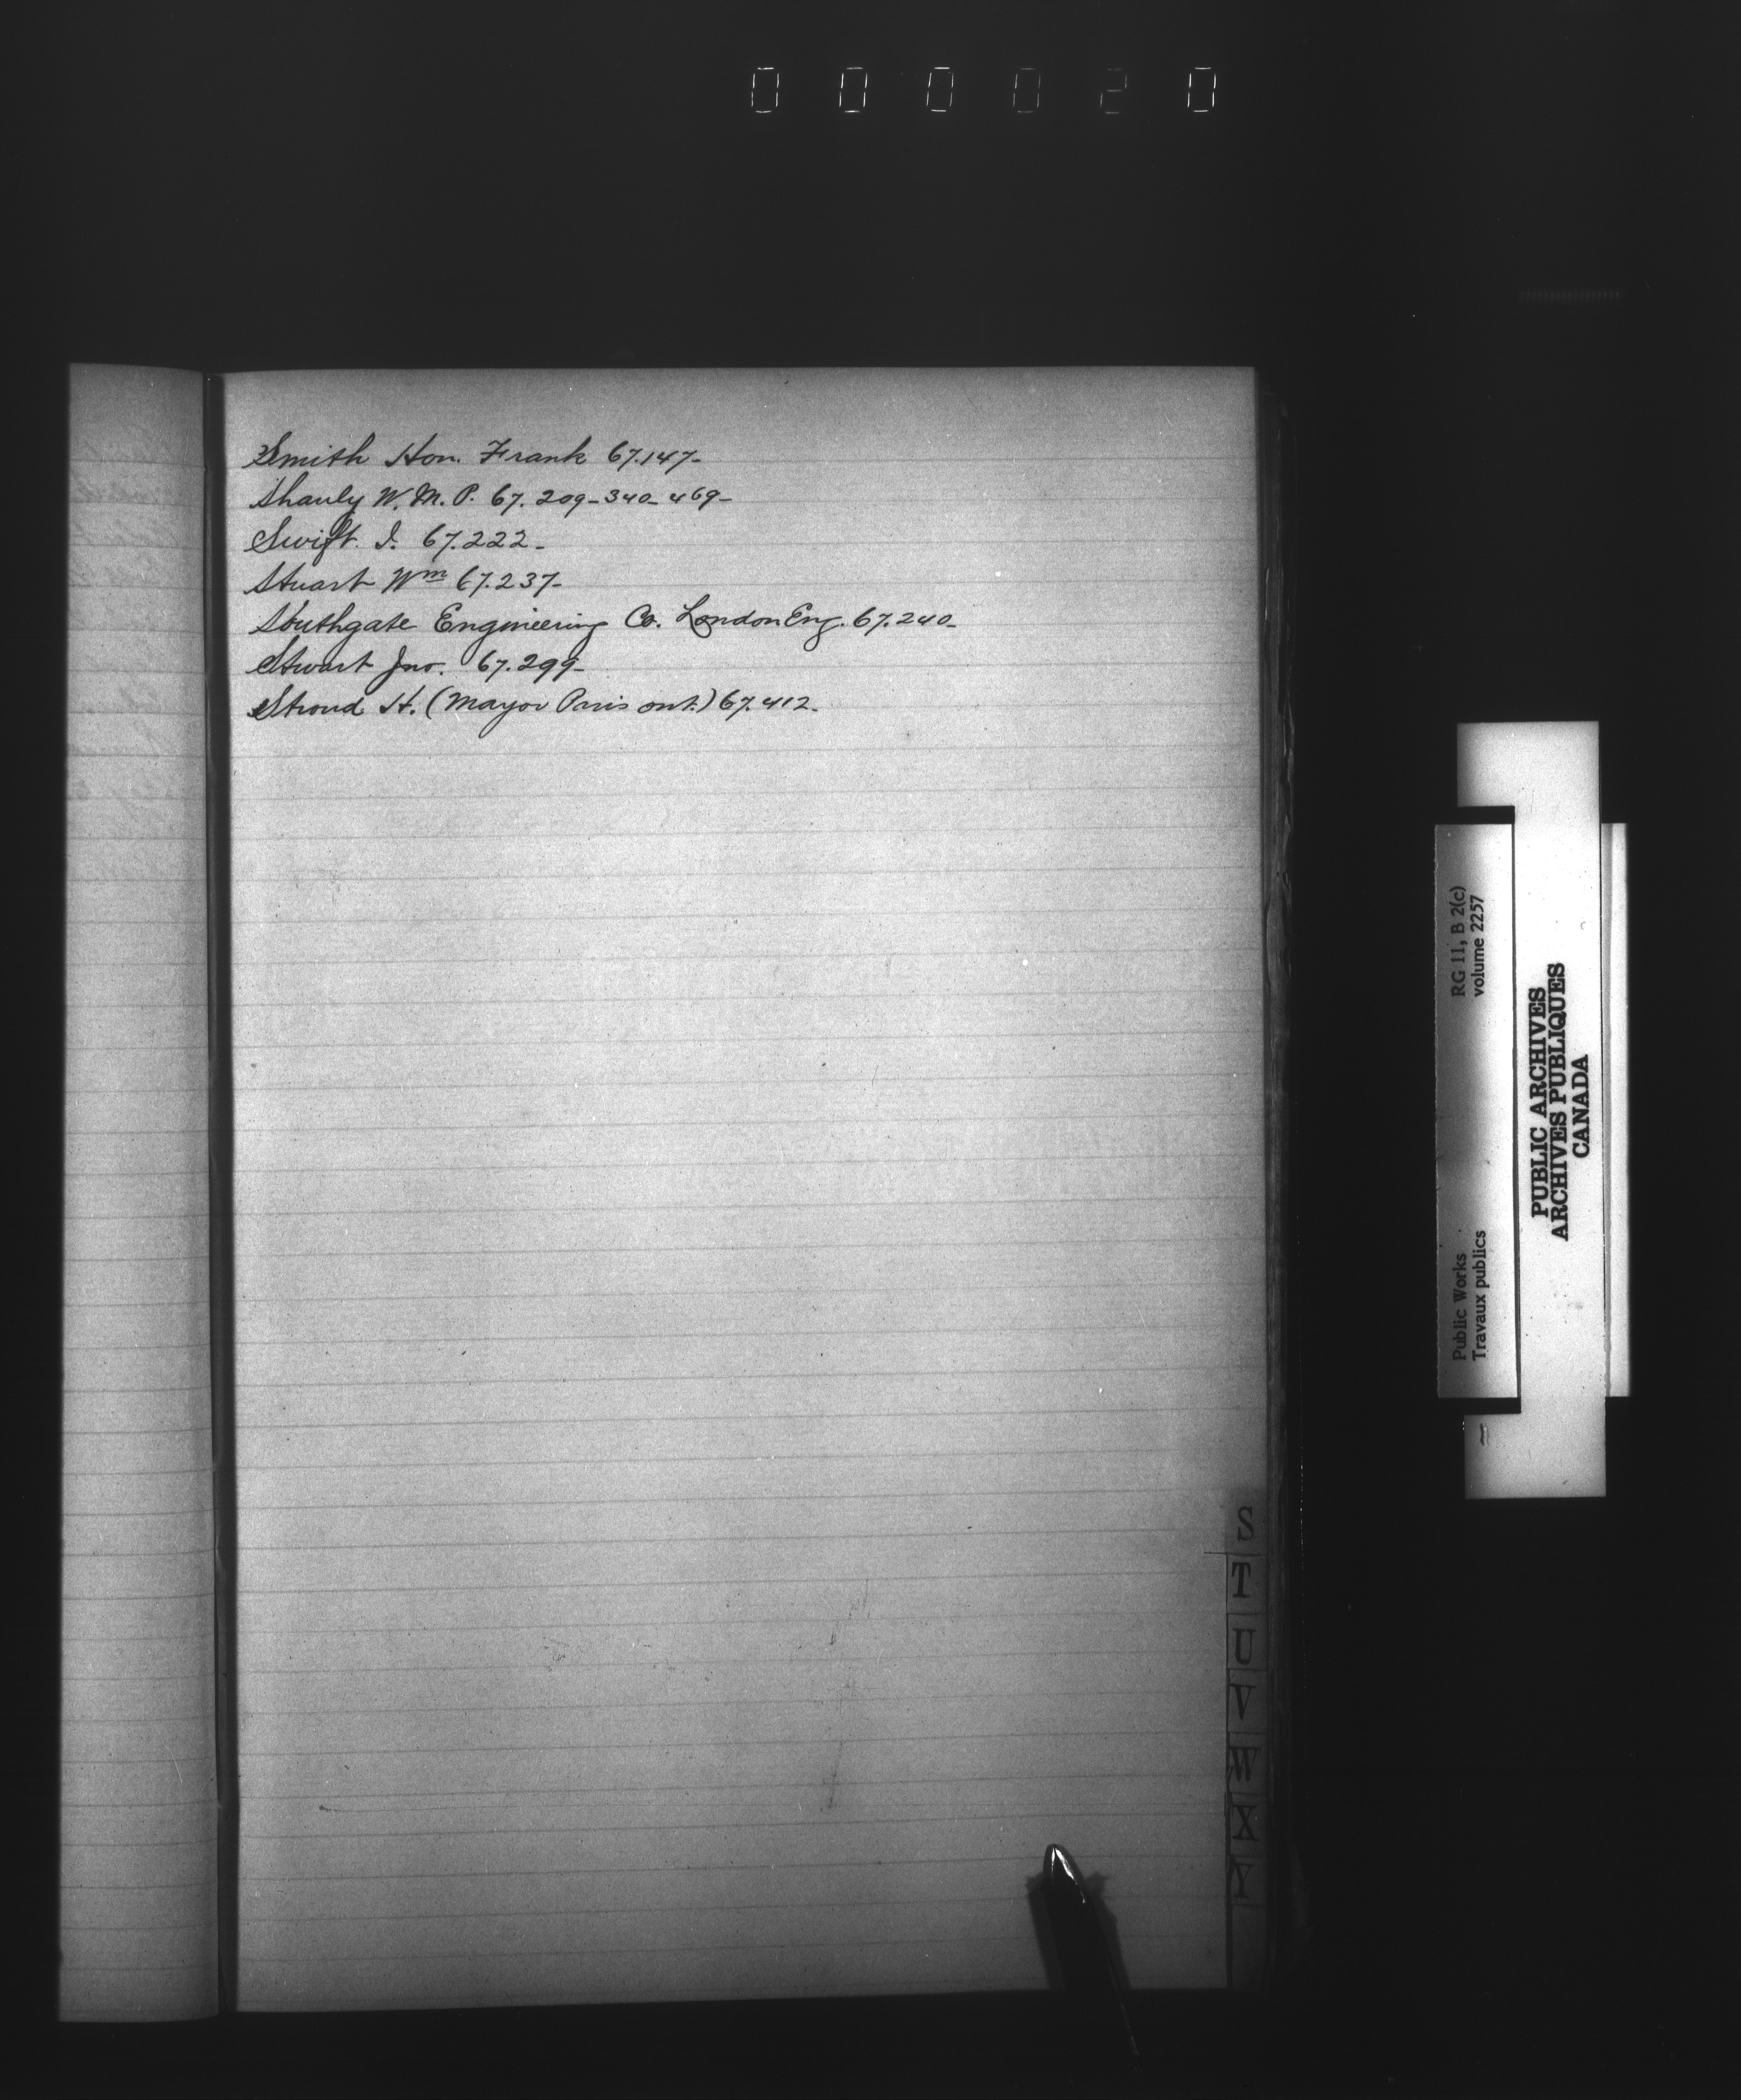 0 0 0 0 2 0
Smith Hon. Frank 67.147-
Shanly W. M. P. 67. 209-340-469-
Swift I. 67.222-
Stuart Wm 67.237-
Southgate Engineering Co. London Eng. 67.240-
Stwart Jno. 67.299-
Stroud H. (Mayor Paris ont.) 67.412.
S
T
U
V
W
X
Y
Public Works
Travaux publics
RG 11, B 2(c)
volume 2257
PUBLIC ARCHIVES
ARCHIVES PUBLIQUES
CANADA